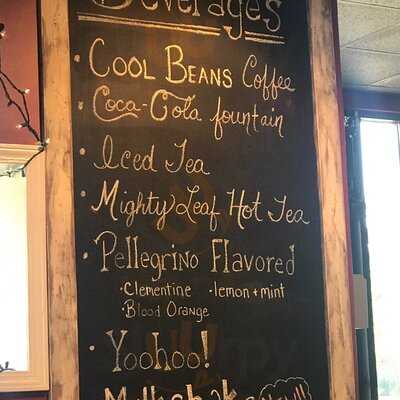 Beverages
• COOL BEANS Coffee
• Coca-Cola fountain
• Iced Tea
• Mighty Leaf Hot Tea
• Pellegrino Flavored
• Clementine • lemon + mint
• Blood Orange
• Yoohoo!